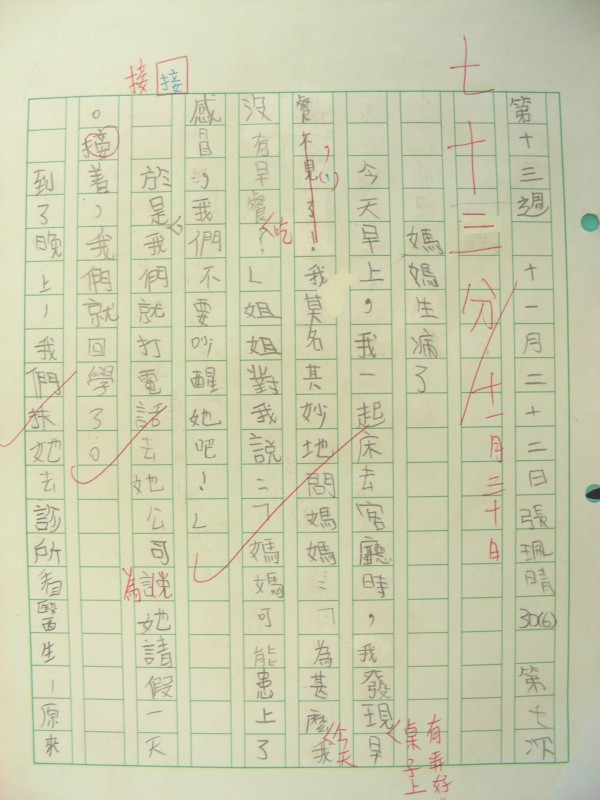 第十三週 十一月二十二日 張珮晴 30(6) 第七次
七十三分 十一月二十日
媽媽生病了
今天早上,我一起床去客廳時,我發現早
有弄好
桌子上
餐不見了!我莫名其妙地問媽媽:「為甚麼我
今天
沒有早餐?」姐姐對我說:「媽媽可能患上了
吃
感冒,我們不要吵醒她吧!」
於是我們就打電話去她公司說她請假一天
為
接 接
。接着,我們就回學了。
到了晚上,我們扶她去診所看醫生,原來